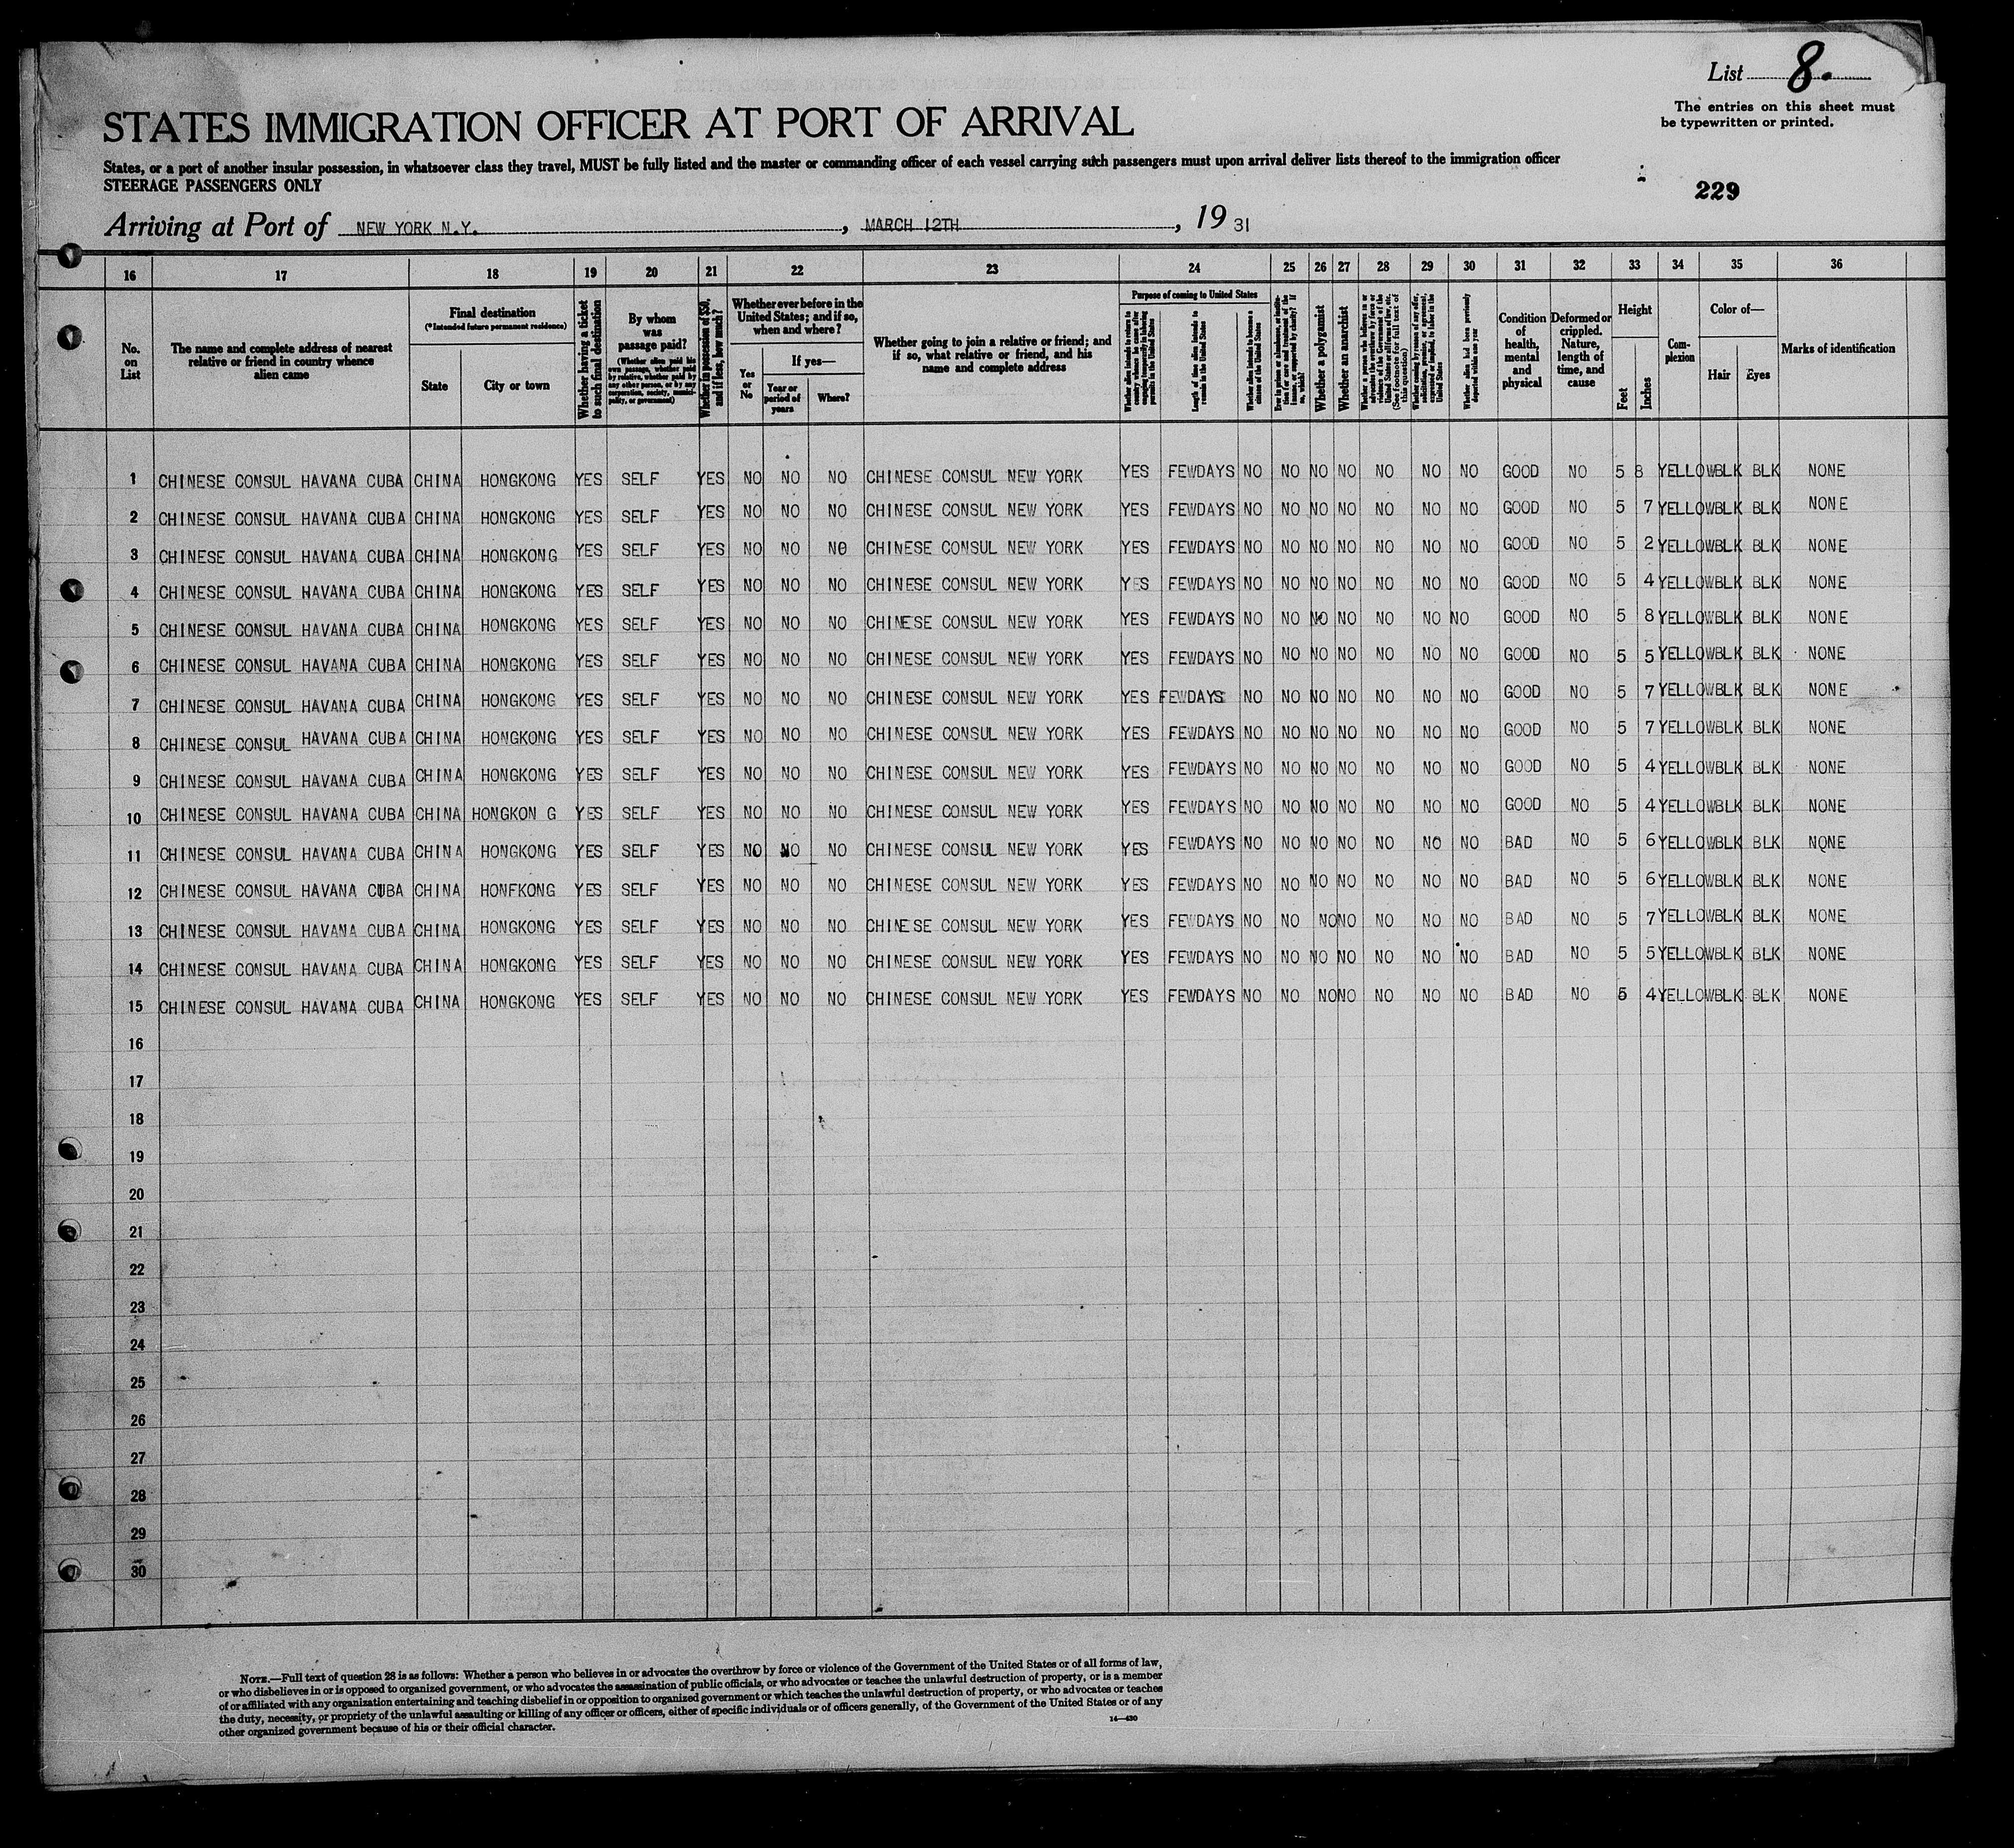 List 8.
The entries on this sheet must
be typewritten or printed.
STATES IMMIGRATION OFFICER AT PORT OF ARRIVAL
States, or a port of another insular possession, in whatsoever class they travel, MUST be fully listed and the master or commanding officer of each vessel carrying such passengers must upon arrival deliver lists thereof to the immigration officer
STEERAGE PASSENGERS ONLY
229
Arriving at Port of NEW YORK N.Y. , MARCH 12TH , 19 31
16 17 18 19 20 21 22 23 24 25 26 27 28 29 30 31 32 33 34 35 36
No. on List
The name and complete address of nearest relative or friend in country whence alien came
Final destination
(*Intended future permanent residence)
State
City or town
Whether having a ticket to such final destination
By whom was passage paid?
(Whether alien paid his own passage, whether paid by relative, whether paid by any other person, or by any corporation, society, municipality, or government)
Whether in possession of $50, and if less, how much?
Whether ever before in the United States; and if so, when and where?
Yes or No
If yes—
Year or period of years
Where?
Whether going to join a relative or friend; and if so, what relative or friend, and his name and complete address
Purpose of coming to United States
Whether alien intends to return to country whence he came after engaging temporarily in laboring pursuits in the United States
Length of time alien intends to remain in the United States
Whether alien intends to become a citizen of the United States
Ever in prison or almshouse, or institution for care and treatment of the insane, or supported by charity? If so, which?
Whether a polygamist
Whether an anarchist
Whether a person who believes in or advocates the overthrow by force or violence of the Government of the United States or all forms of law, etc. (See footnote for full text of this question)
Whether coming by reason of any offer, solicitation, promise, or agreement, expressed or implied, to labor in the United States
Whether alien had been previously deported within one year
Condition of health, mental and physical
Deformed or crippled. Nature, length of time, and cause
Height
Feet
Inches
Complexion
Color of—
Hair
Eyes
Marks of identification
1 CHINESE CONSUL HAVANA CUBA CHINA HONGKONG YES SELF YES NO NO NO CHINESE CONSUL NEW YORK YES FEWDAYS NO NO NO NO NO NO NO GOOD NO 5 8 YELLOW BLK BLK NONE
2 CHINESE CONSUL HAVANA CUBA CHINA HONGKONG YES SELF YES NO NO NO CHINESE CONSUL NEW YORK YES FEWDAYS NO NO NO NO NO NO NO GOOD NO 5 7 YELLOW BLK BLK NONE
3 CHINESE CONSUL HAVANA CUBA CHINA HONGKONG YES SELF YES NO NO NO CHINESE CONSUL NEW YORK YES FEWDAYS NO NO NO NO NO NO NO GOOD NO 5 2 YELLOW BLK BLK NONE
4 CHINESE CONSUL HAVANA CUBA CHINA HONGKONG YES SELF YES NO NO NO CHINESE CONSUL NEW YORK YES FEWDAYS NO NO NO NO NO NO NO GOOD NO 5 4 YELLOW BLK BLK NONE
5 CHINESE CONSUL HAVANA CUBA CHINA HONGKONG YES SELF YES NO NO NO CHINESE CONSUL NEW YORK YES FEWDAYS NO NO NO NO NO NO NO GOOD NO 5 8 YELLOW BLK BLK NONE
6 CHINESE CONSUL HAVANA CUBA CHINA HONGKONG YES SELF YES NO NO NO CHINESE CONSUL NEW YORK YES FEWDAYS NO NO NO NO NO NO NO GOOD NO 5 5 YELLOW BLK BLK NONE
7 CHINESE CONSUL HAVANA CUBA CHINA HONGKONG YES SELF YES NO NO NO CHINESE CONSUL NEW YORK YES FEWDAYS NO NO NO NO NO NO NO GOOD NO 5 7 YELLOW BLK BLK NONE
8 CHINESE CONSUL HAVANA CUBA CHINA HONGKONG YES SELF YES NO NO NO CHINESE CONSUL NEW YORK YES FEWDAYS NO NO NO NO NO NO NO GOOD NO 5 7 YELLOW BLK BLK NONE
9 CHINESE CONSUL HAVANA CUBA CHINA HONGKONG YES SELF YES NO NO NO CHINESE CONSUL NEW YORK YES FEWDAYS NO NO NO NO NO NO NO GOOD NO 5 4 YELLOW BLK BLK NONE
10 CHINESE CONSUL HAVANA CUBA CHINA HONGKON G YES SELF YES NO NO NO CHINESE CONSUL NEW YORK YES FEWDAYS NO NO NO NO NO NO NO GOOD NO 5 4 YELLOW BLK BLK NONE
11 CHINESE CONSUL HAVANA CUBA CHINA HONGKONG YES SELF YES NO NO NO CHINESE CONSUL NEW YORK YES FEWDAYS NO NO NO NO NO NO NO BAD NO 5 6 YELLOW BLK BLK NONE
12 CHINESE CONSUL HAVANA CUBA CHINA HONFKONG YES SELF YES NO NO NO CHINESE CONSUL NEW YORK YES FEWDAYS NO NO NO NO NO NO NO BAD NO 5 6 YELLOW BLK BLK NONE
13 CHINESE CONSUL HAVANA CUBA CHINA HONGKONG YES SELF YES NO NO NO CHINESE CONSUL NEW YORK YES FEWDAYS NO NO NO NO NO NO NO BAD NO 5 7 YELLOW BLK BLK NONE
14 CHINESE CONSUL HAVANA CUBA CHINA HONGKONG YES SELF YES NO NO NO CHINESE CONSUL NEW YORK YES FEWDAYS NO NO NO NO NO NO NO BAD NO 5 5 YELLOW BLK BLK NONE
15 CHINESE CONSUL HAVANA CUBA CHINA HONGKONG YES SELF YES NO NO NO CHINESE CONSUL NEW YORK YES FEWDAYS NO NO NO NO NO NO NO BAD NO 5 4 YELLOW BLK BLK NONE
16
17
18
19
20
21
22
23
24
25
26
27
28
29
30
NOTE.—Full text of question 28 is as follows: Whether a person who believes in or advocates the overthrow by force or violence of the Government of the United States or of all forms of law,
or who disbelieves in or is opposed to organized government, or who advocates the assassination of public officials, or who advocates or teaches the unlawful destruction of property, or is a member
of or affiliated with any organization entertaining and teaching disbelief in or opposition to organized government or which teaches the unlawful destruction of property, or who advocates or teaches
the duty, necessity, or propriety of the unlawful assaulting or killing of any officer or officers, either of specific individuals or of officers generally, of the Government of the United States or of any
other organized government because of his or their official character.
14—430